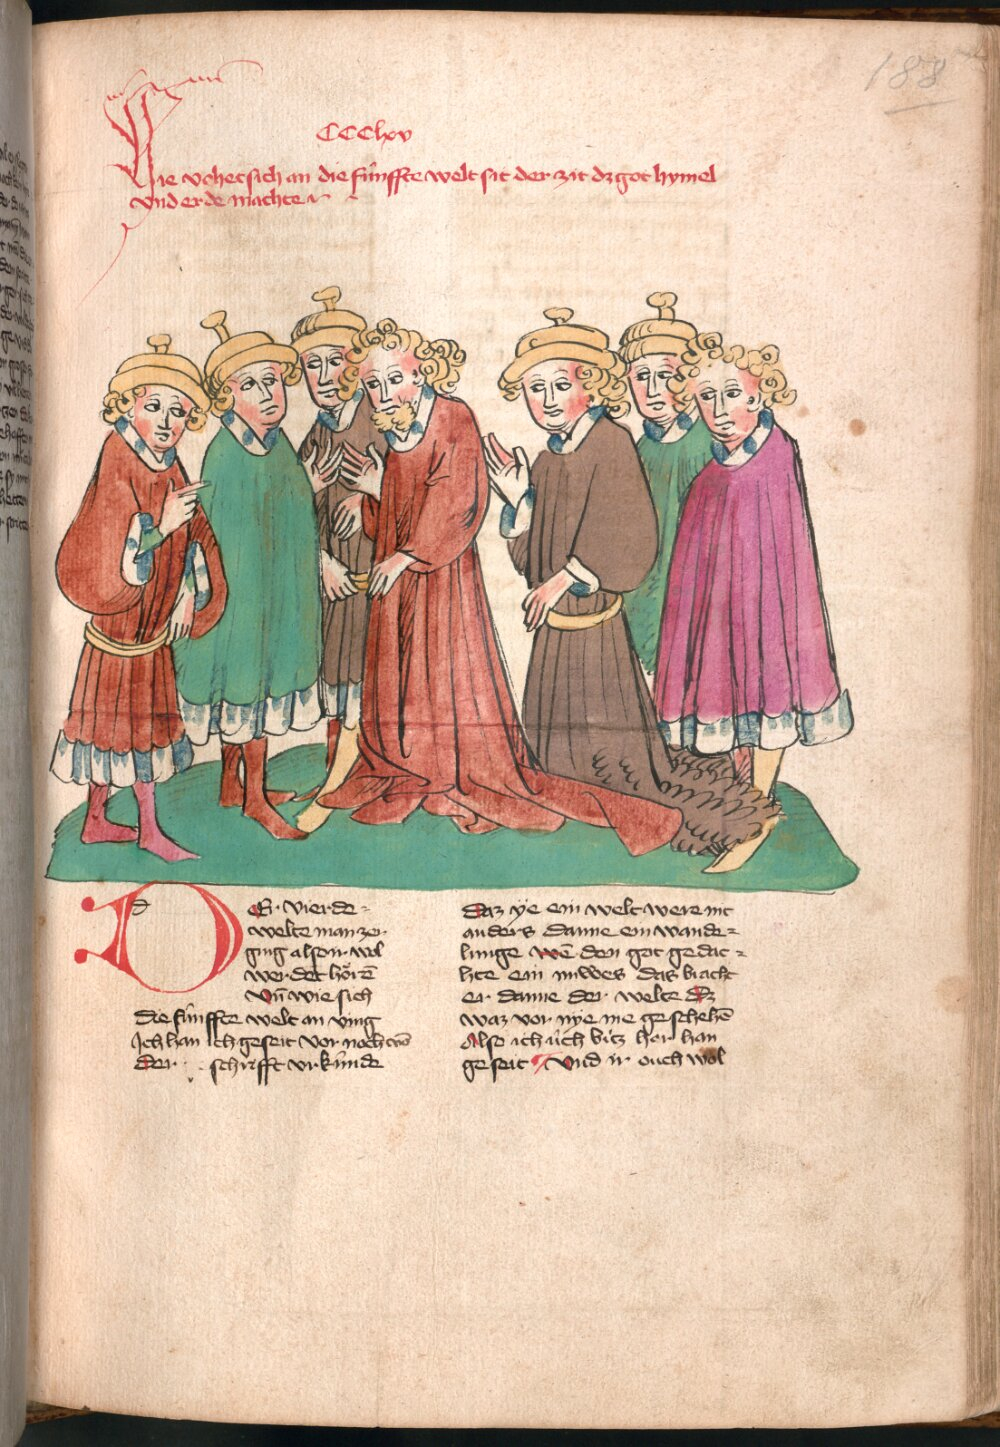 188
CCClxv
Hie vohet sich an die fúnffte welt sit der zit dz got hymel
vnd erde machte
DEr vierde
welte man zer
ging also ir wol
werdet hörē
vn̄ wie sich
die fúnffte welt an ving
Ich han ich geseit vor noch
der schrifft vrkúnde
Daz ye ein welt were nit
anders danne ein wande-
lunge wē den got gedac-
hte ein nuwes das bracht
er danne der welte dz
waz vor nye me geschehē
Also ich úch bitz her han
geseit Vnd ir ouch wol